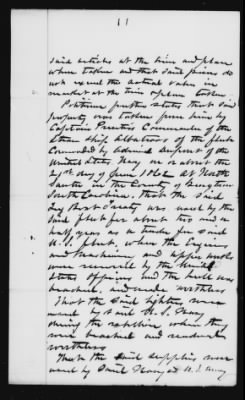 11
said articles at the time and place
where taken and that said prices do
not exceed the actual value in
market at the time & place taken
Petitioner further states that said
property was taken from him by
Captain Prentiss Commander of the
Steam Ship Albatross of the fleet
Commanded by Admiral Dupont of the
United States Navy on or about the
21st day of June 1862 at North
Santee in the County of Georgetown
South Carolina. that the said
was used by the
said fleet for about two and a
half years as a tender for said
U.S. fleet. when the Engines
and Machinery and upper works
were removed by the United
States officers and the hull was
beached, and made worthless
That the said lighters were
used by said U.S. Navy
during the rebellion when they
were beached and rendered
worthless
That the said supplies were
used by said U.S. Navy